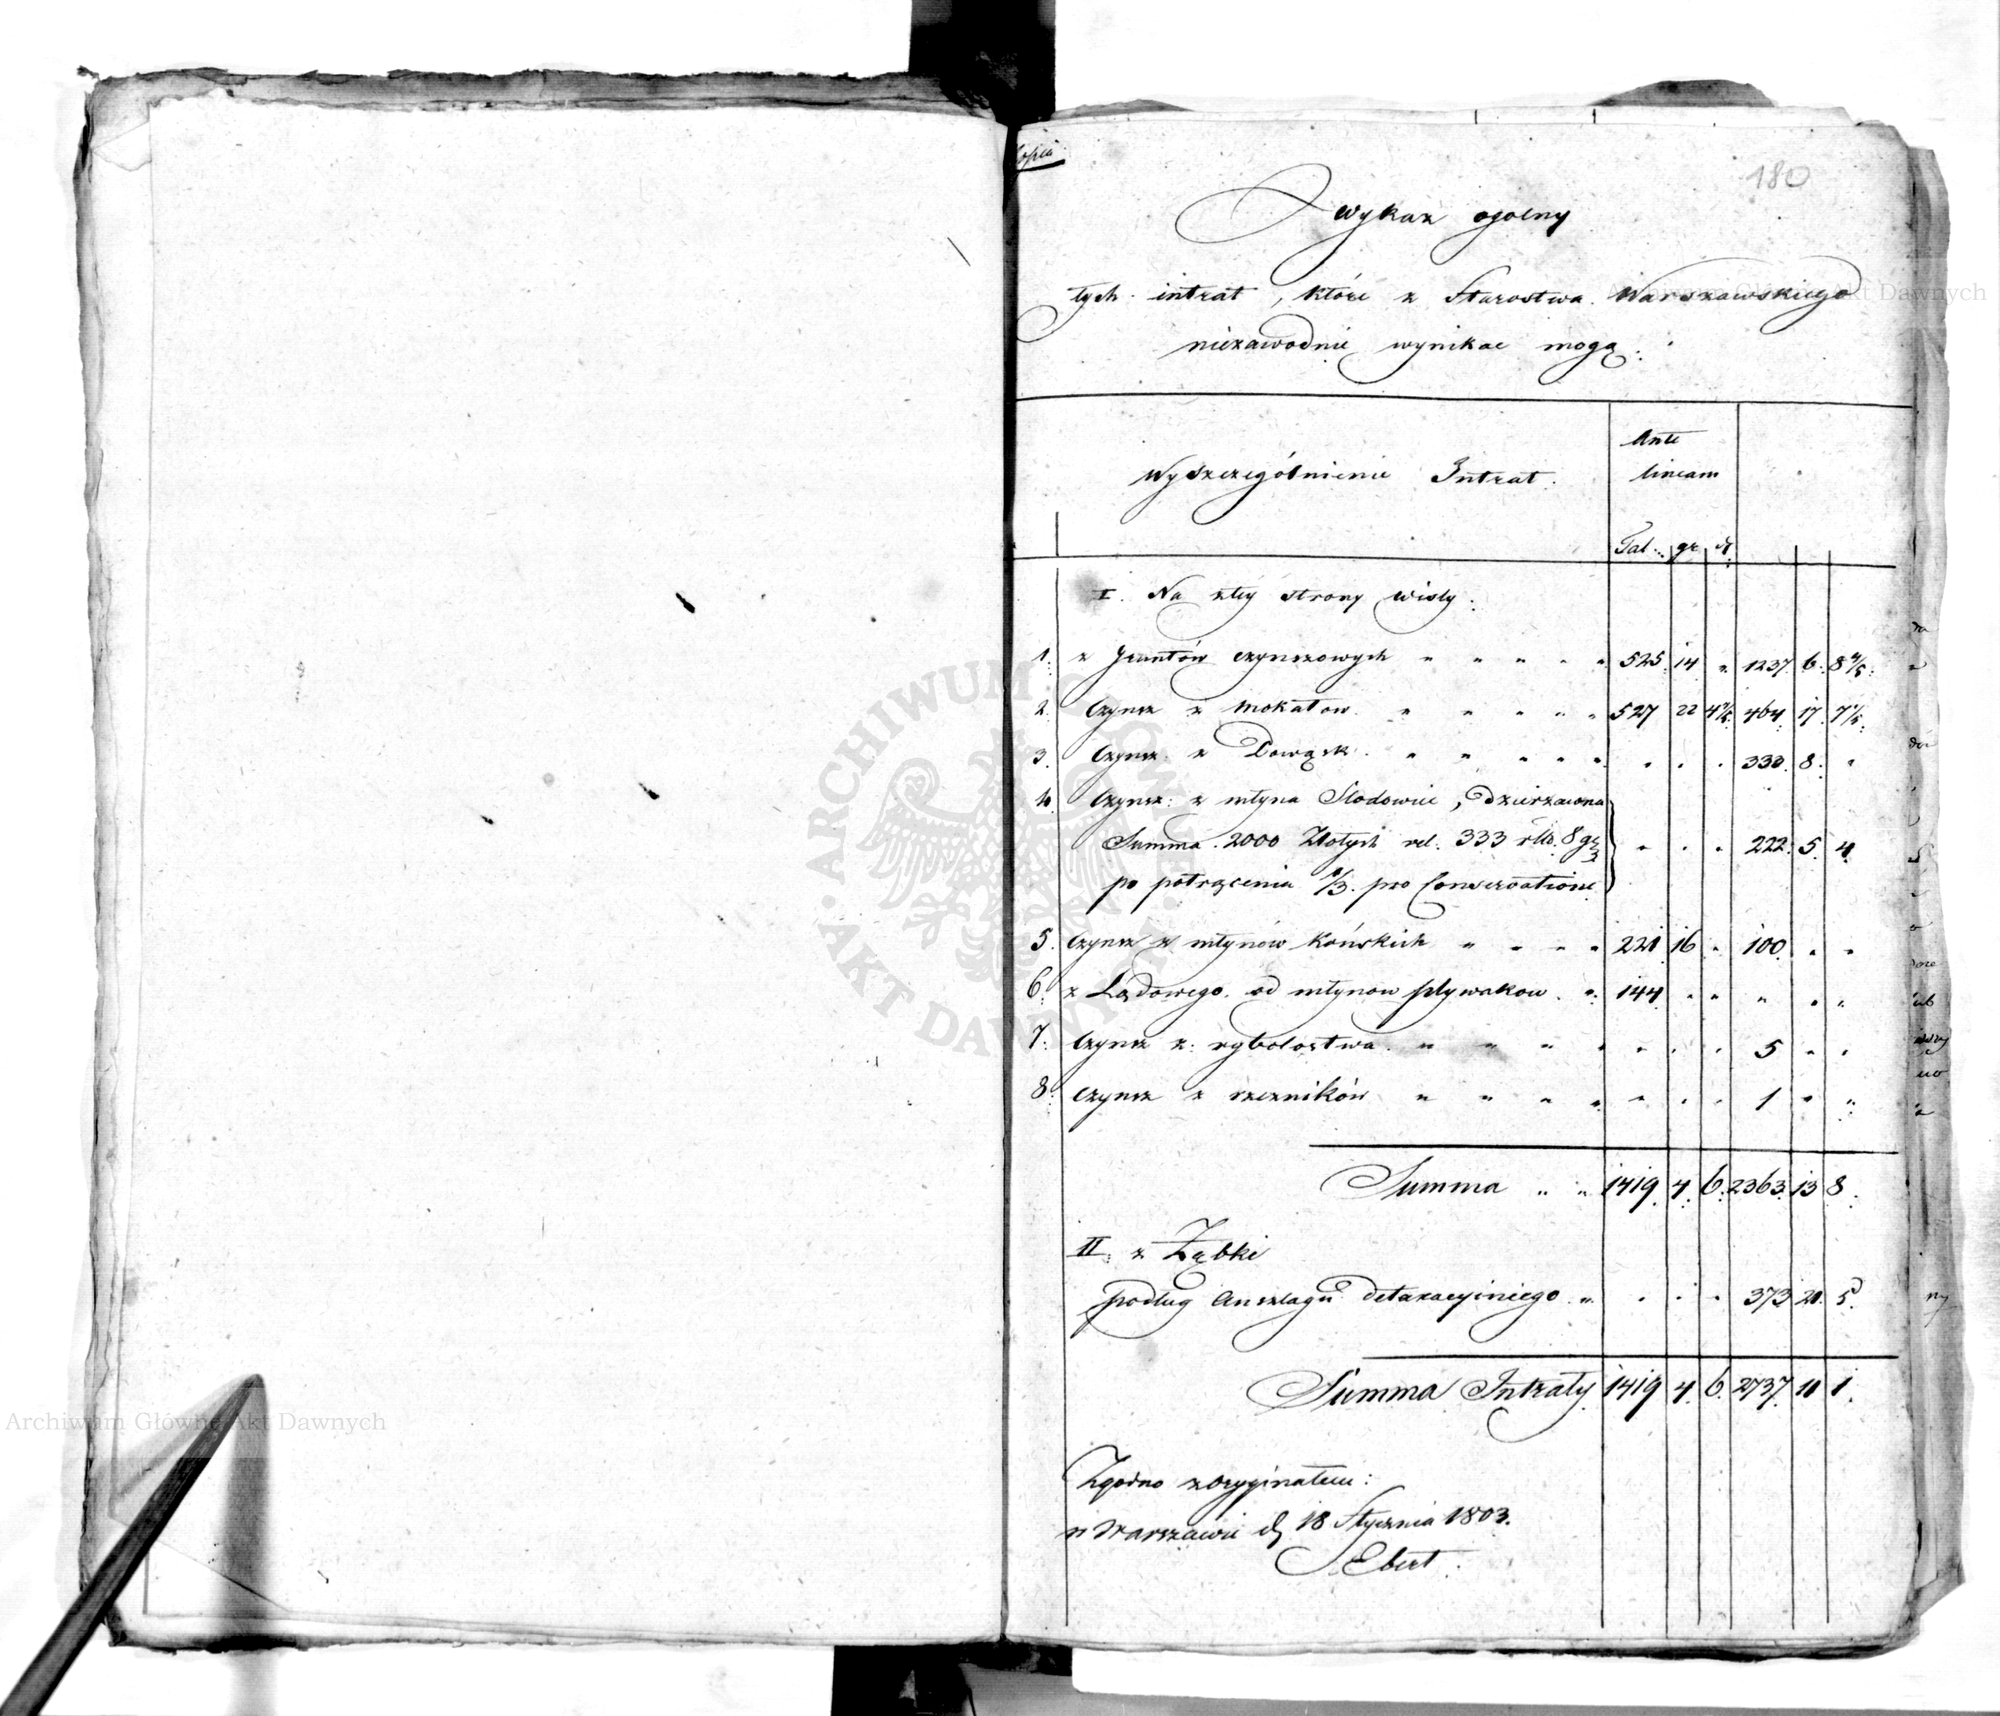 Copia
180
Wykaz ogolny
tych intrat, które z Starostwa Warszawskiego
niezawodnie wynikac mogą:
Wyszczególnienie Intrat.
Ante
lineam
Tal. gr. d.
I. Na tey strony Wisly:
1. z Gruntów czynszowych " " " " " 525. 14 " 1237. 6. 8 4/5.
2. Czynsz z Mokatow. " " " " " 527 22 4 4/5. 464. 17. 7 1/5.
3. Czynsz z " " " " " " " " 333. 8. "
4. Czynsz: z młyna Slodowiec, Dzierzawna
Summa. 2000 Złotych vel. 333 rtlr. 8 gr " " " 222. 5. 4.
po potrącenia 1/3. pro Conservatione
5. Czynsz z młynów Końskich " " " " 221 16 " 100. " "
6. z Lądowego. od młynow pływakow. " 144. " " " " "
7. Czynsz z: rybolostwa. " " " " " " " 5 " "
8. Czynsz z rzezników " " " " " " " 1 " "
Summa " " 1419. 4. 6. 2363. 13 8.
II. z Ząbki
podług Anszlagu detaxacyiniego. " " " " 373 21. 5.
Summa Intraty 1419 4. 6. 2737. 11 1.
Zgodno z oryginałem:
w Warszawie d 18 Stycznia 1803.
Ebert.
ARCHIWUM GŁÓWNE
AKT DAWNYCH
Archiwum Główne Akt Dawnych
Archiwum Główne Akt Dawnych